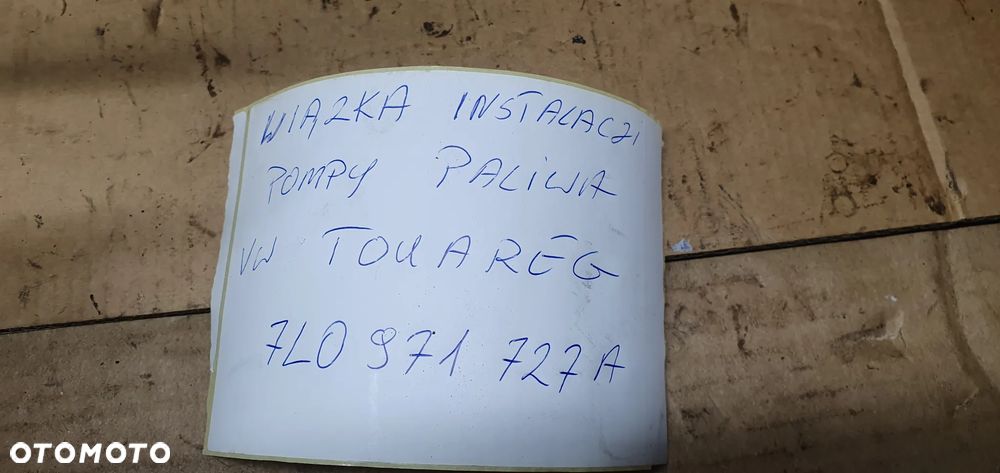 WIĄZKA INSTALACZI
POMPY PALIWA
VW TOUAREG
7L0 971 727A
OTOMOTO